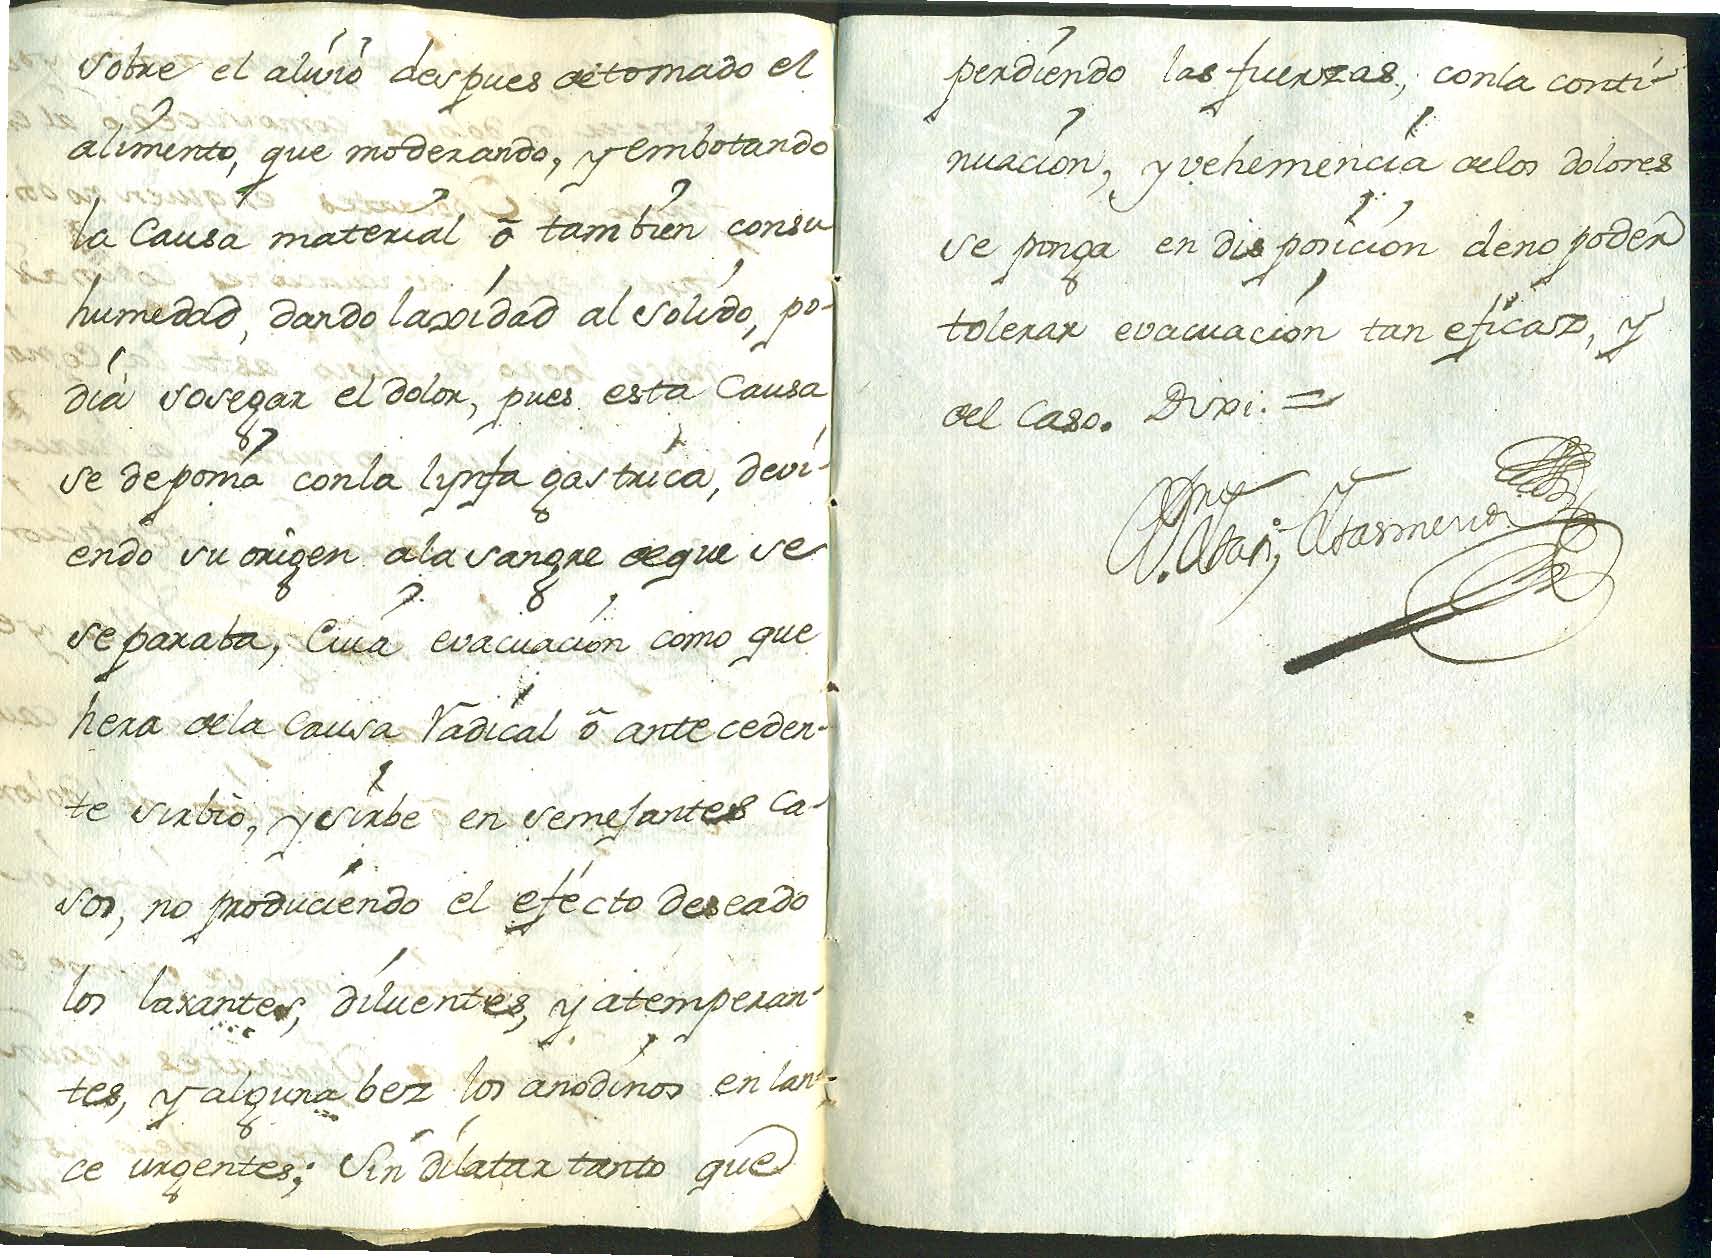 sobre el alivio despues de tomado el
alimento, que moderando, y embotando
la Causa material ô tambien consu
humedad, dando laxidad al solido, po-
dia sosegar el dolor, pues esta Causa
se deponia conla lynfa gastrica, devi-
endo su origen ala sangre deque se
separaba, Cuia evacuacion como que
hera dela Causa Radical ô anteceden-
te sirbio, y sirbe en semejantes ca-
sos, no produciendo el efecto deseado
los laxantes, diluentes, y atemperan-
tes, y alguna bez los anodinos en lan-
ce urgentes; Sin dilatar tanto que
perdiendo las fuerzas, conla conti-
nuacion, y vehemencia delos dolores
se ponga en disposicion deno poder
tolerar evacuacion tan eficaz, y
del Caso. Dixi. =